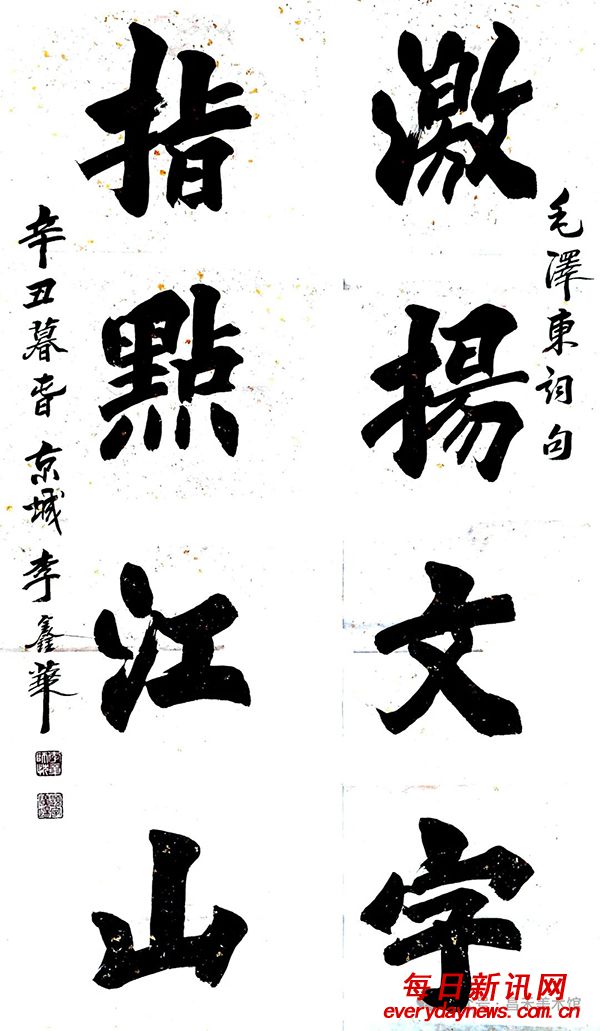 毛澤東詞句
激揚文字
指點江山
辛丑暮春京城李鑫華
每日新讯网
everydaynews.com.cn
美术馆